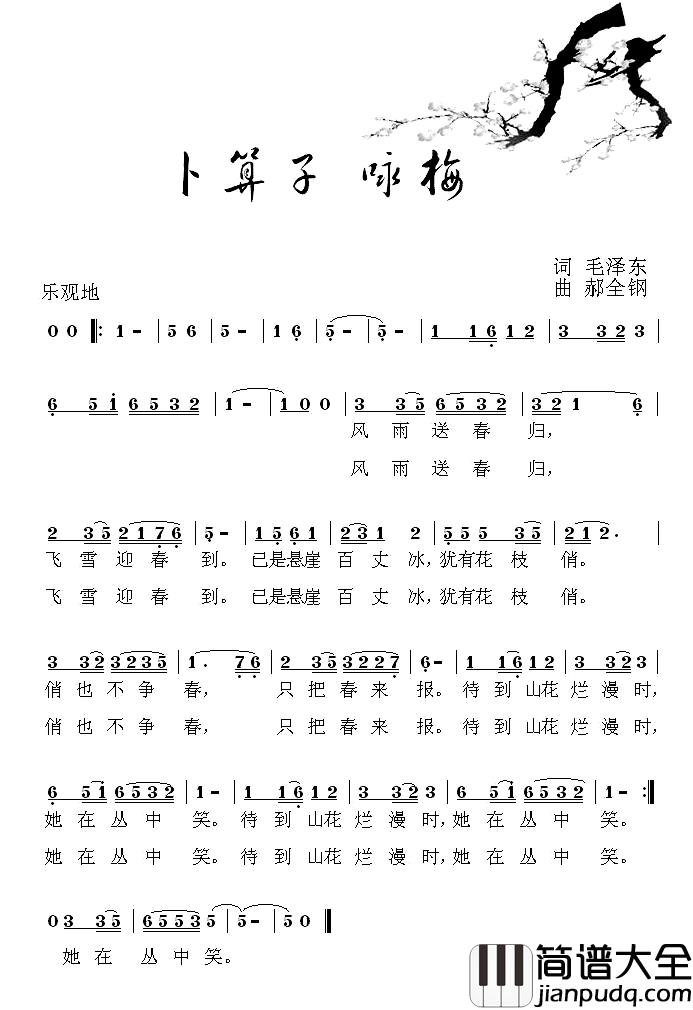 卜算子 咏梅
词 毛泽东
乐观地
曲 郝全钢
0 0 ‖: 1 - | 5 6 | 5 - | 1 6 | 5 - | 5 - | 1 1 6 1 2 | 3 3 2 3 |
6 5 i 6 5 3 2 | 1 - | 1 0 0 | 3 3 5 6 5 3 2 | 3 2 1 6 |
风 雨 送 春 归，
风 雨 送 春 归，
2 3 5 2 1 7 6 | 5 - | 1 5 6 1 | 2 3 1 2 | 5 5 5 3 5 | 2 1 2 . |
飞 雪 迎 春 到。 已是悬崖 百 丈 冰，犹有花 枝 俏。
飞 雪 迎 春 到。 已是悬崖 百 丈 冰，犹有花 枝 俏。
3 3 2 3 2 3 5 | 1 . 7 6 | 2 3 5 3 2 2 7 | 6 - | 1 1 6 1 2 | 3 3 2 3 |
俏 也 不 争 春， 只 把 春 来 报。待 到 山花 烂 漫 时，
俏 也 不 争 春， 只 把 春 来 报。待 到 山花 烂 漫 时，
6 5 i 6 5 3 2 | 1 - | 1 1 6 1 2 | 3 3 2 3 | 6 5 i 6 5 3 2 | 1 - :‖
她 在 丛 中 笑。待 到 山花 烂 漫 时，她 在 丛 中 笑。
她 在 丛 中 笑。待 到 山花 烂 漫 时，她 在 丛 中 笑。
0 3 3 5 | 6 5 5 3 5 | 5 - | 5 0 ‖
她 在 丛 中 笑。
简谱大全
jianpudq.com